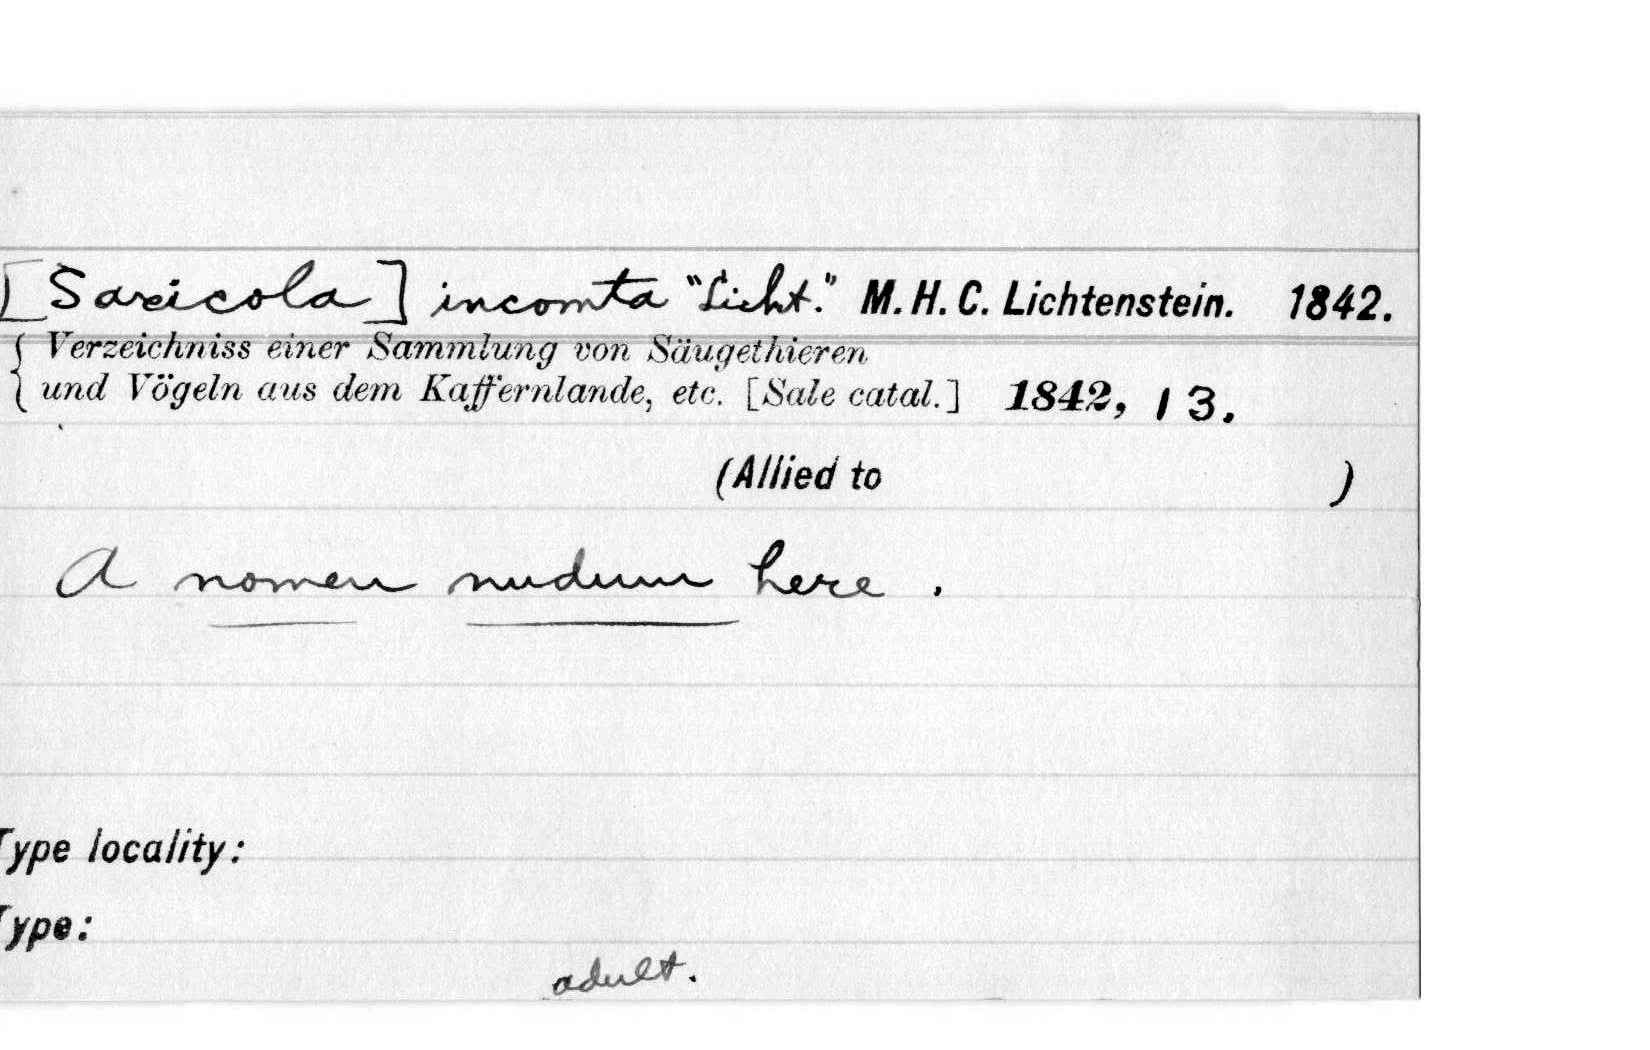 [Saxicola] incomta "Licht." M. H. C. Lichtenstein. 1842.
{ Verzeichniss einer Sammlung von Säugethieren
und Vögeln aus dem Kaffernlande, etc. [Sale catal.] 1842, 13.
(Allied to )
A nomen nudum here.
Type locality:
Type:
adult.